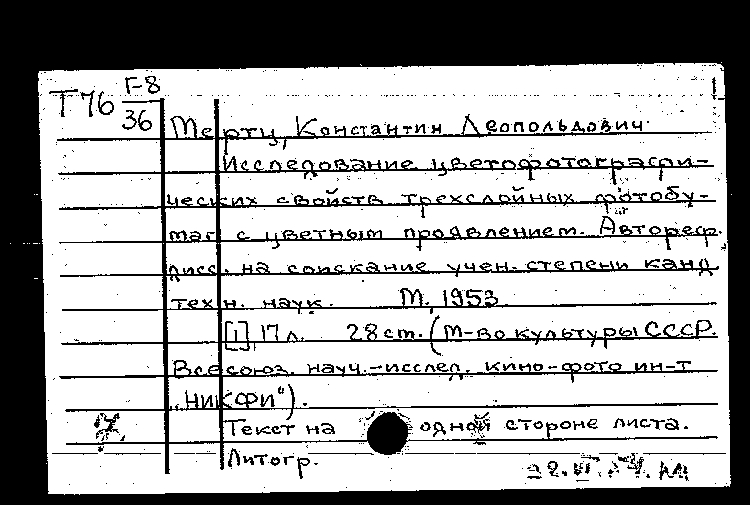 Т76 Г-8
36
Мертц, Константин Леопольдович.
Исследование цветофотографи-
ческих свойств трехслойных фотобу-
маг с цветным проявлением. Автореф.
дисс. на соискание учен. степени канд.
техн. наук. М., 1953
[1], 17 л. 28 cm. (М-во культуры СССР.
Всесоюз. науч.-исслед. кино-фото ин-т
„НИКФИ").
Текст на одной стороне листа.
Литогр.